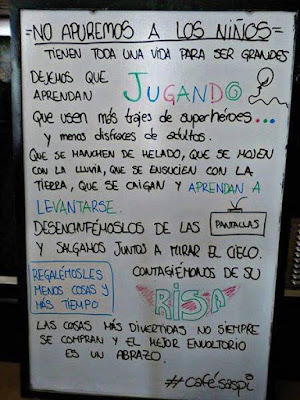 =NO APUREMOS A LOS NIÑOS=
TIENEN TODA UNA VIDA PARA SER GRANDES
DEJEMOS QUE
APRENDAN JUGANDO
QUE USEN MÁS TRAJES DE SUPERHÉROES...
Y MENOS DISFRACES DE ADULTOS.
QUE SE MANCHEN DE HELADO, QUE SE MOJEN
CON LA LLUVIA, QUE SE ENSUCIEN CON LA
TIERRA, QUE SE CAIGAN Y APRENDAN A
LEVANTARSE.
DESENCHUFÉMOSLOS DE LAS PANTALLAS
Y SALGAMOS JUNTOS A MIRAR EL CIELO.
REGALÉMOSLES
MENOS COSAS Y
MÁS TIEMPO
CONTAGIÉMONOS DE SU
RISA
LAS COSAS MÁS DIVERTIDAS NO SIEMPRE
SE COMPRAN Y EL MEJOR ENVOLTORIO
ES UN ABRAZO.
#cafésaspi